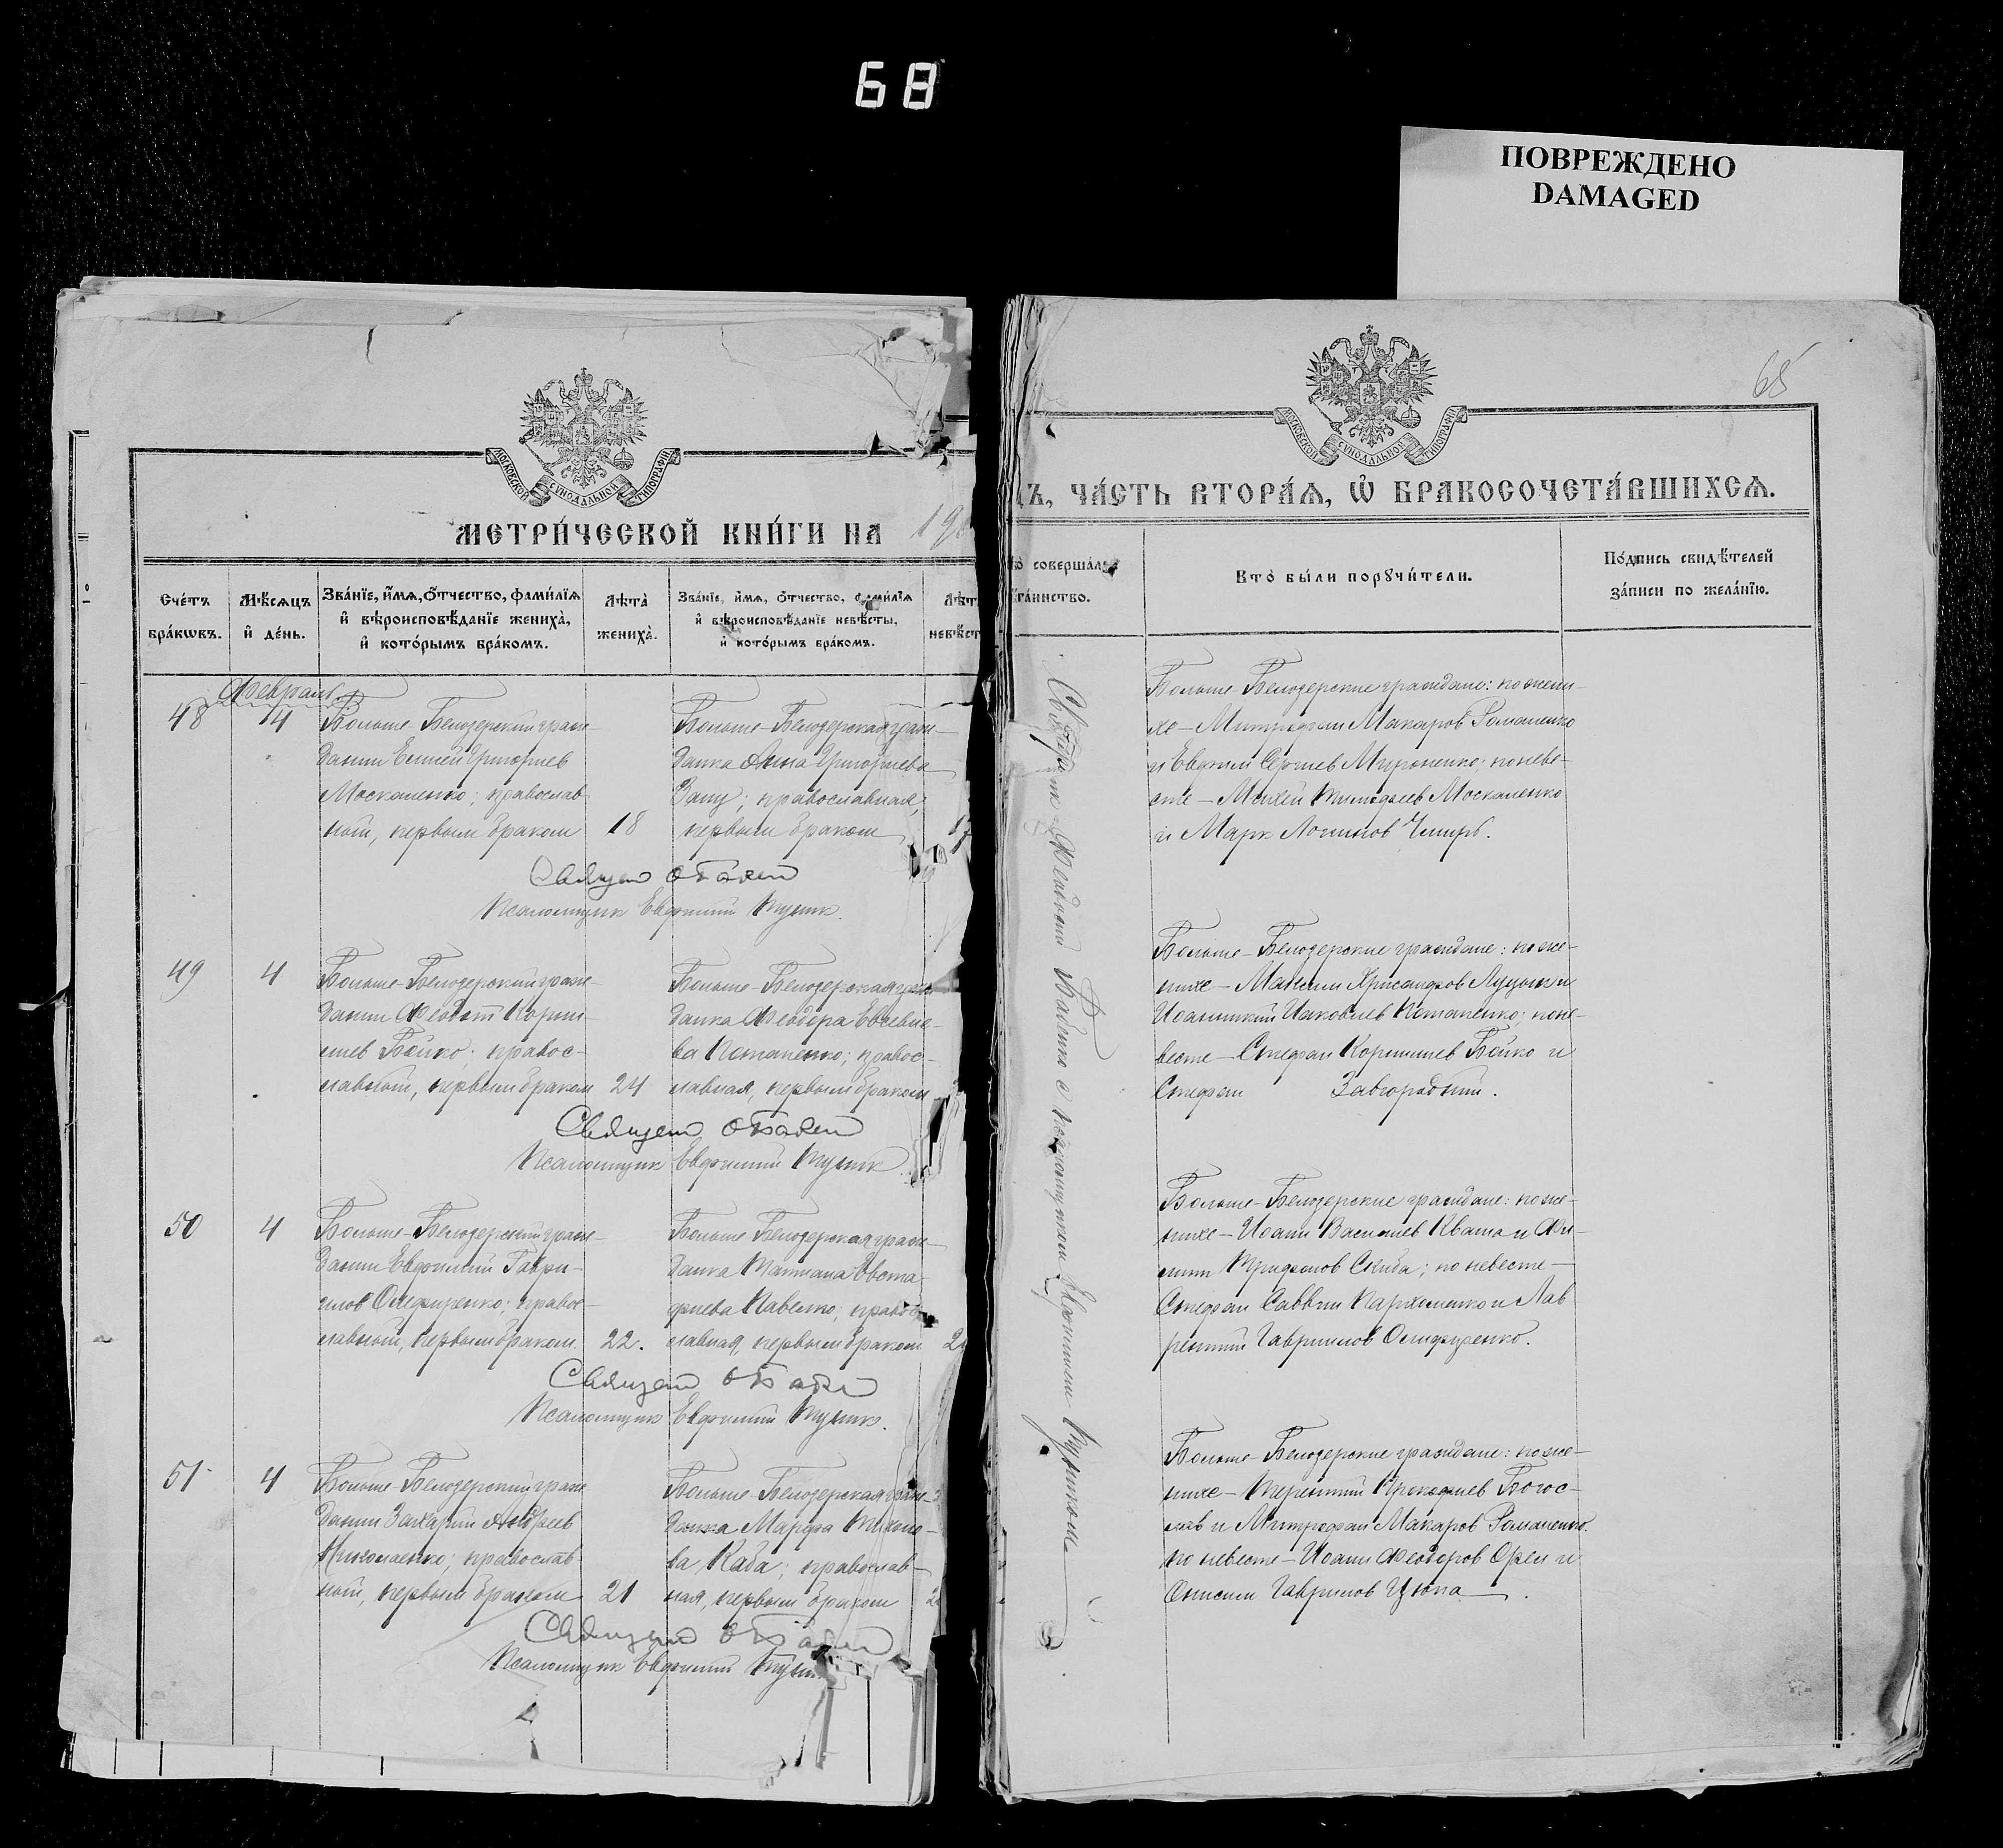 68
ПОВРЕЖДЕНО
DAMAGED
МОСКОВСКОЙ СѴНОДАЛЬНОЙ ТИПОГРАФІИ
МЕТРИ́ЧЕСКОЙ КНИ́ГИ НА 19
Сче́тъ бра́кѡвъ.
Мѣ́сѧцъ и҆ де́нь.
Зва́нїе, и҆́мѧ, ѻ҆́тчество, фами́лїѧ
и҆ вѣроисповѣ́данїе жениха̀,
и҆ кото́рымъ бра́комъ.
Лѣта̀ жениха̀.
Зва́нїе, и҆́мѧ, ѻ҆́тчество, фами́лїѧ
и҆ вѣроисповѣ́данїе невѣ́сты,
и҆ кото́рымъ бра́комъ.
Лѣт
невѣ́ст
Февраль
48 4
Больше-Белозерский граж-
данин Елисей Григориев
Москаленко; православ-
ный, первым браком 18
Больше-Белозерская граж-
данка Анна Григориева
православная,
первым браком
Священ
Псаломщик Евфимий Тулик.
49 4
Больше-Белозерский граж-
данин Феодот Корни-
лиев Бойко; правос-
лавный, первым браком 24
Больше-Белозерская граж
данка Феодора Евсевие-
ва Потапенко; правос-
лавная, первым браком
Священ
Псаломщик Евфимий Тулик
50 4
Больше-Белозерский граж-
данин Евфимий Гаври-
илов правос-
лавный, первым браком 22.
Больше-Белозерская граж-
данка Татиана Евста-
фиева Павелко; правос
лавная, первым браком 2
Священ
Псаломщик Евфимий Тулик.
51 4
Больше-Белозерский граж
данин Захарий Андреев
Николаенко; православ-
ный, первым браком 21
Больше-Белозерская граж-
данка Марфа Тихоно-
ва Каба; православ-
ная, первым браком 2
Священ
Псаломщик Евфимий Тулик
65
МОСКОВСКОЙ СѴНОДАЛЬНОЙ ТИПОГРАФІИ
ДЪ, ЧА́СТЬ ВТОРА́Ѧ, Ѡ҆ БРАКОСОЧЕТА́ВШИХСѦ.
то̀ соверша́лъ
та́инство.
Кто̀ бы́ли порꙋчи́тели.
По́дпись свидѣ́телей
за́писи по жела́нїю.
с псаломщиком Евфимием Туликом
Больше-Белозерские граждане: по жени-
хе – Митрофан Макаров Романенко
и Евфимий Сергиев Мироненко; по неве-
сте – Тимофеев Москаленко
и Марк Логинов Чмырь.
Больше-Белозерские граждане: по же-
нихе – Максим Хрисанфов Луцык и
Иоанникий Иаковлев Потапенко; по не-
весте – Стефан Корнилиев Бойко и
Стефан Завгородний.
Больше-Белозерские граждане: по же-
нихе – Иоанн Василиев Кваша и Фи-
липп Трифонов Скиба; по невесте –
Стефан Саввин Пархоменко и Лав
рентий Гавриилов
Больше-Белозерские граждане: по же-
нихе – Терентий Прокофиев Богос-
лов и Митрофан Макаров Романенко.
по невесте – Иоанн Феодоров Орел и
Онисим Гавриилов Цюпа.